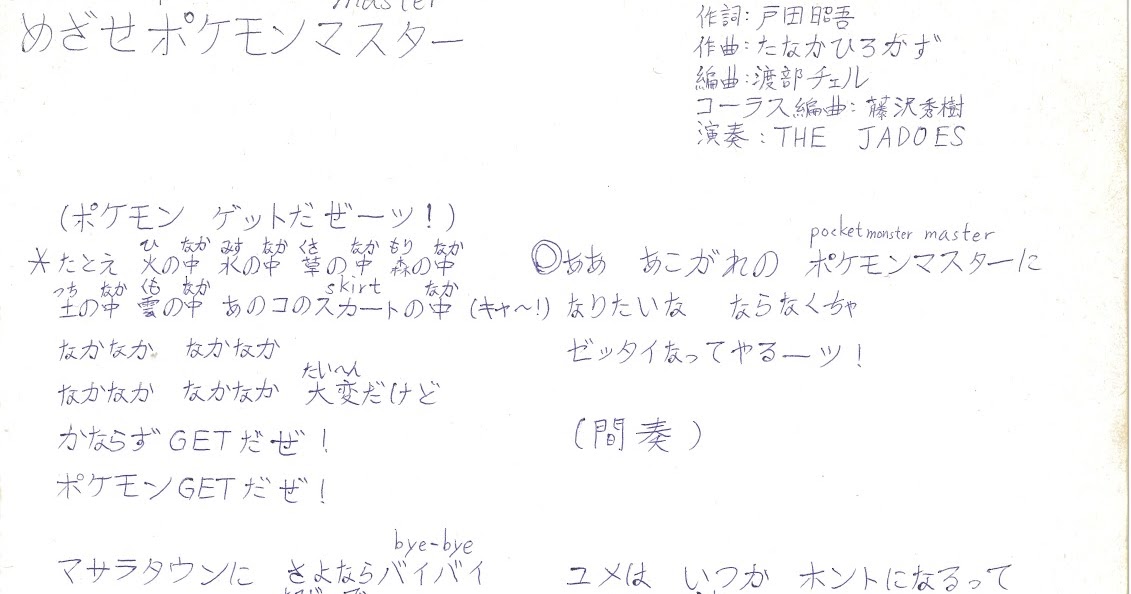 master
めざせポケモンマスター
作詞：戸田昭吾
作曲：たなかひろかず
編曲：渡部チェル
コーラス編曲：藤沢秀樹
演奏：THE JADOES
(ポケモン ゲットだぜーッ！)
ひ なか みず なか くさ なか もり なか
*たとえ 火の中 水の中 草の中 森の中
つち なか くも なか skirt なか
土の中 雲の中 あのコのスカートの中 (キャ〜!)
なかなか なかなか
たいへん
なかなか なかなか 大変だけど
かならずGETだぜ！
ポケモンGETだぜ！
bye-bye
マサラタウンに さよならバイバイ
pocket monster master
◎ああ あこがれの ポケモンマスターに
なりたいな ならなくちゃ
ゼッタイなってやるーッ！
(間奏)
ユメは いつか ホントになるって